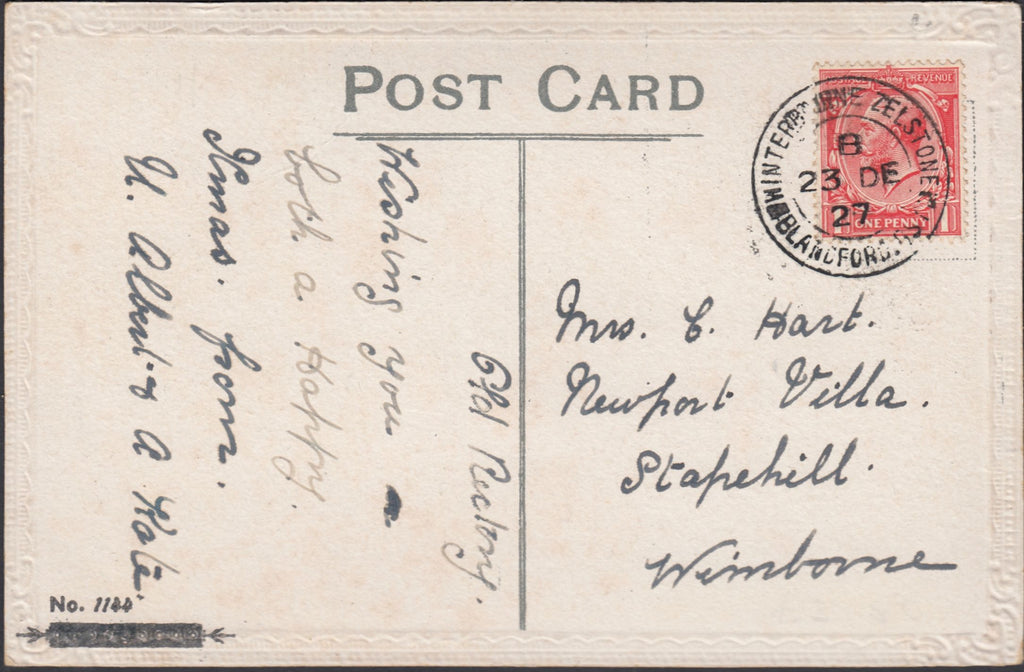 POST CARD
REVENUE
ONE PENNY
WINTERBOURNE ZELSTONE
B
23 DE
27
BLANDFORD.
Old Rectory.
Wishing you
both a Happy
Xmas. from.
U. Albert & A Kate.
Mrs. C. Hart.
Newport Villa.
Stapehill.
Wimborne
No. 1144